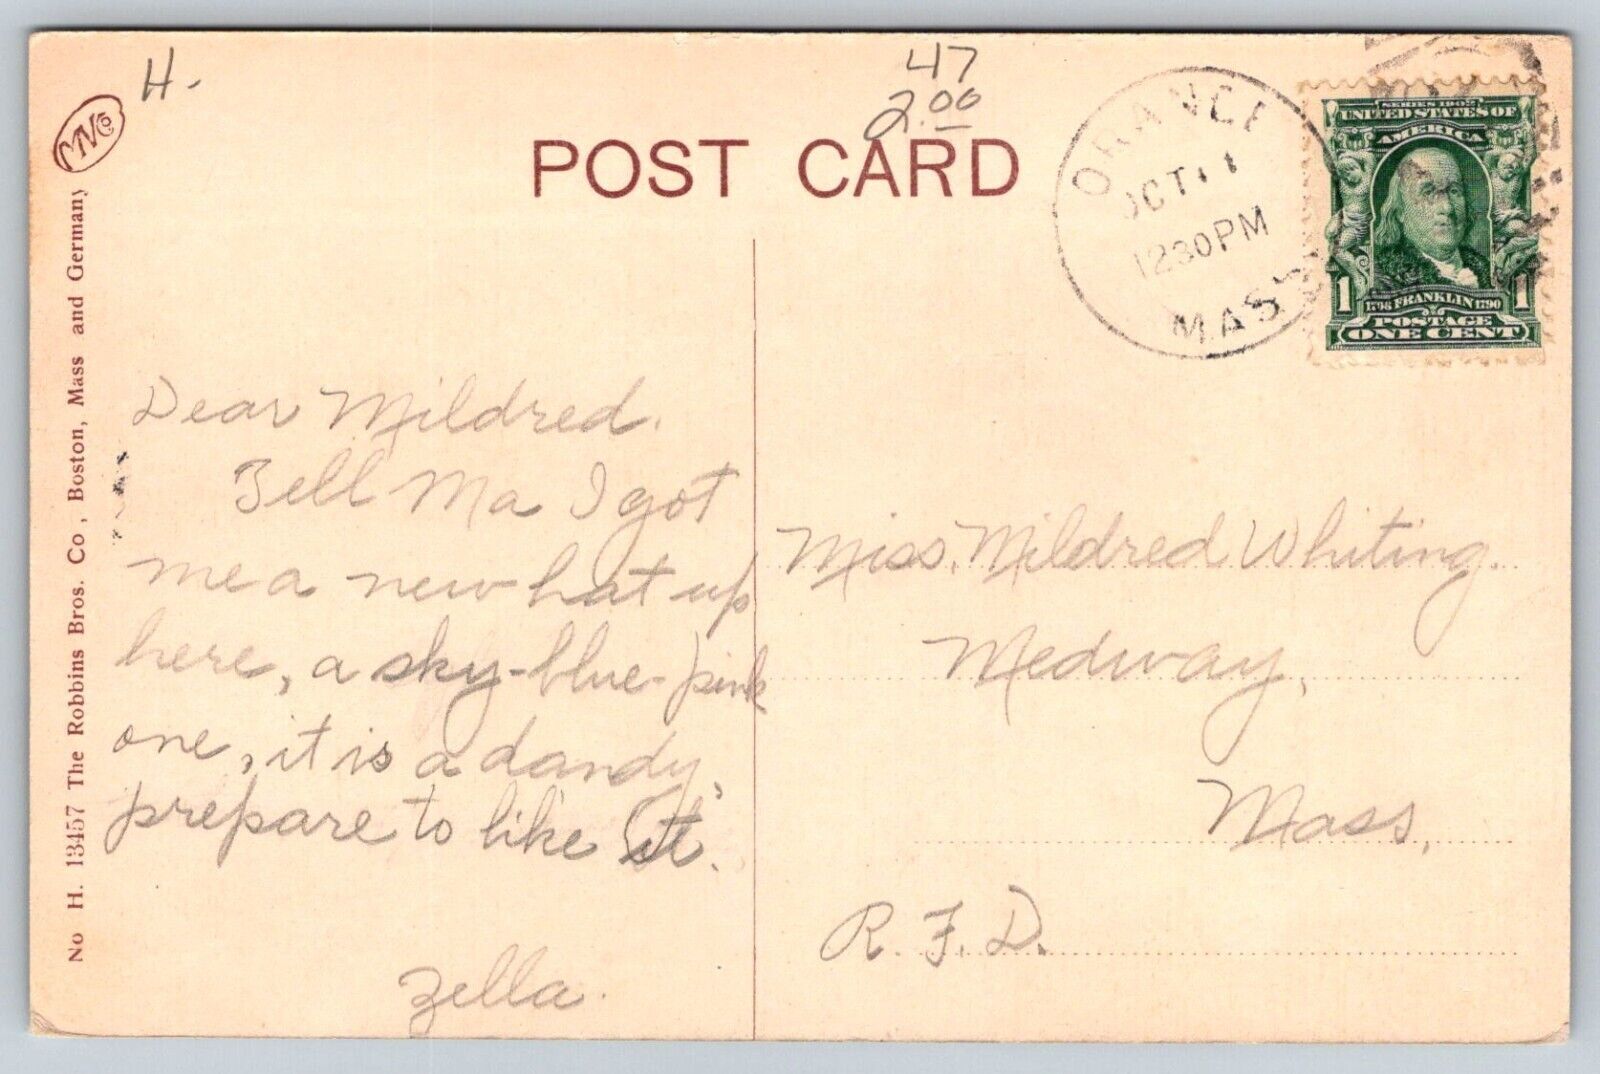 H.
47
2.00
MVCo
POST CARD
ORANGE
OCT 11
1230 PM
MASS
SERIES 1902
UNITED STATES OF
AMERICA
1706 FRANKLIN 1790
1 1
POSTAGE
ONE CENT
No H. 13457 The Robbins Bros. Co., Boston, Mass and Germany
Dear Mildred.
Tell Ma I got
me a new hat up
here, a sky-blue-pink
one, it is a dandy,
prepare to like it.
Zella.
Miss. Mildred Whiting.
Medway,
Mass,
R. F. D.